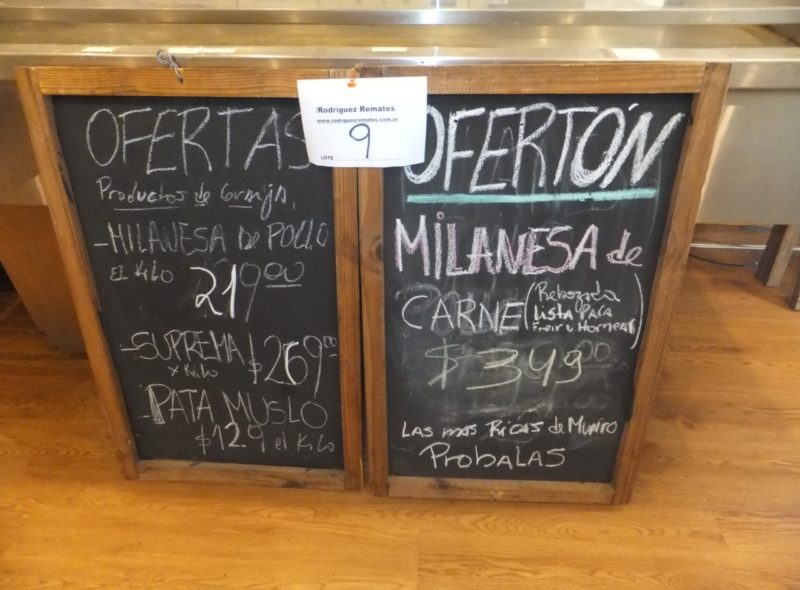 OFERTAS
Productos de Granja
-MILANESA de POLLO
EL Kilo 219.00
-SUPREMA $269.00
x Kilo
-PATA MUSLO
$129 el Kilo
Rodriguez Remates
www.rodriguezremates.com.ar
9
LOTE:
OFERTÓN
MILANESA de
CARNE (Rebozada
Lista PARA
Freir u Hornear)
$349.00
LAS mas Ricas de
PRobALAS